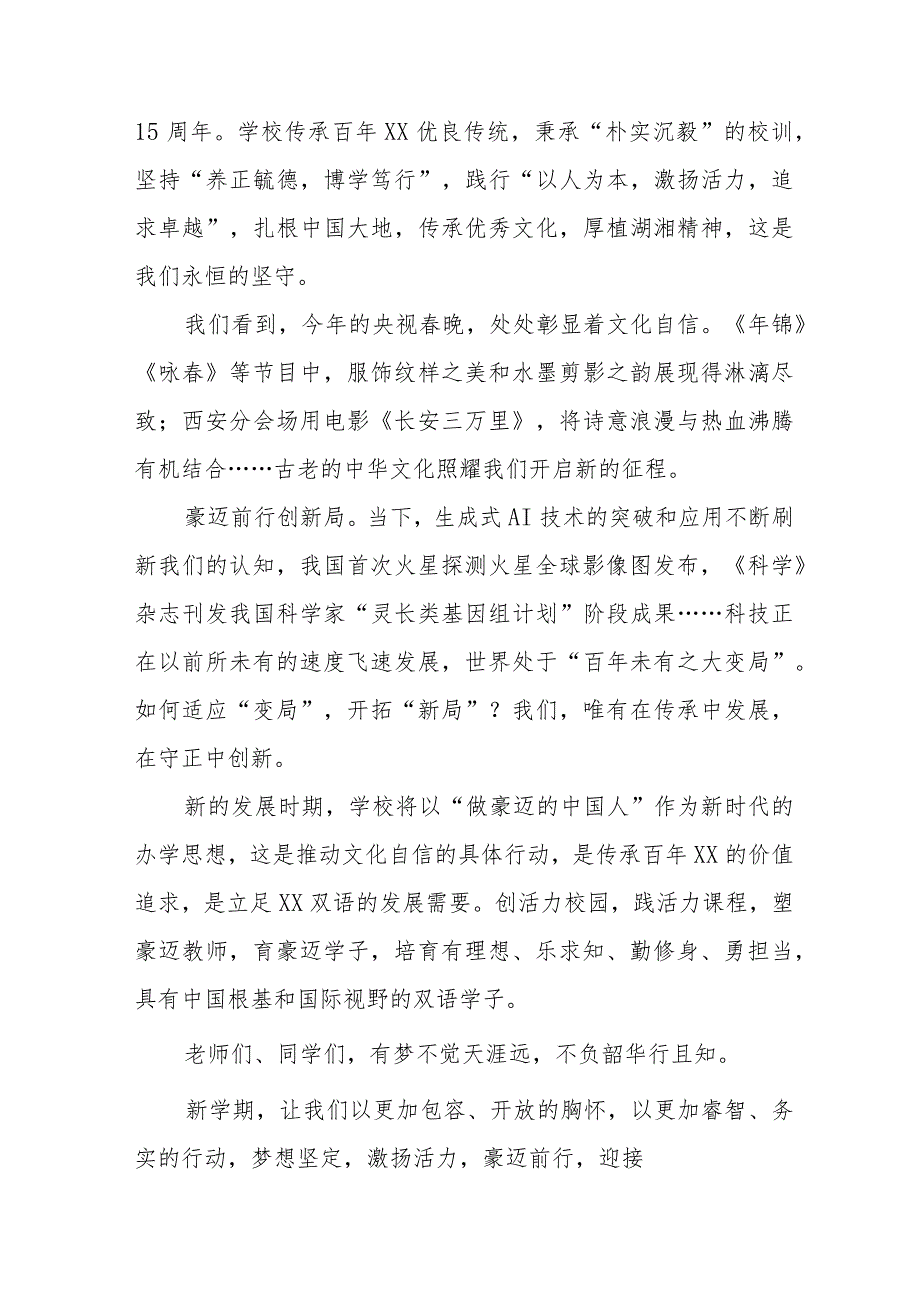 15 周年。学校传承百年 XX 优良传统，秉承“朴实沉毅”的校训，
坚持“养正毓德，博学笃行”，践行“以人为本，激扬活力，追
求卓越”，扎根中国大地，传承优秀文化，厚植湖湘精神，这是
我们永恒的坚守。
我们看到，今年的央视春晚，处处彰显着文化自信。《年锦》
《咏春》等节目中，服饰纹样之美和水墨剪影之韵展现得淋漓尽
致；西安分会场用电影《长安三万里》，将诗意浪漫与热血沸腾
有机结合……古老的中华文化照耀我们开启新的征程。
豪迈前行创新局。当下，生成式 AI 技术的突破和应用不断刷
新我们的认知，我国首次火星探测火星全球影像图发布，《科学》
杂志刊发我国科学家“灵长类基因组计划”阶段成果……科技正
在以前所未有的速度飞速发展，世界处于“百年未有之大变局”。
如何适应“变局”，开拓“新局”？我们，唯有在传承中发展，
在守正中创新。
新的发展时期，学校将以“做豪迈的中国人”作为新时代的
办学思想，这是推动文化自信的具体行动，是传承百年 XX 的价值
追求，是立足 XX 双语的发展需要。创活力校园，践活力课程，塑
豪迈教师，育豪迈学子，培育有理想、乐求知、勤修身、勇担当，
具有中国根基和国际视野的双语学子。
老师们、同学们，有梦不觉天涯远，不负韶华行且知。
新学期，让我们以更加包容、开放的胸怀，以更加睿智、务
实的行动，梦想坚定，激扬活力，豪迈前行，迎接